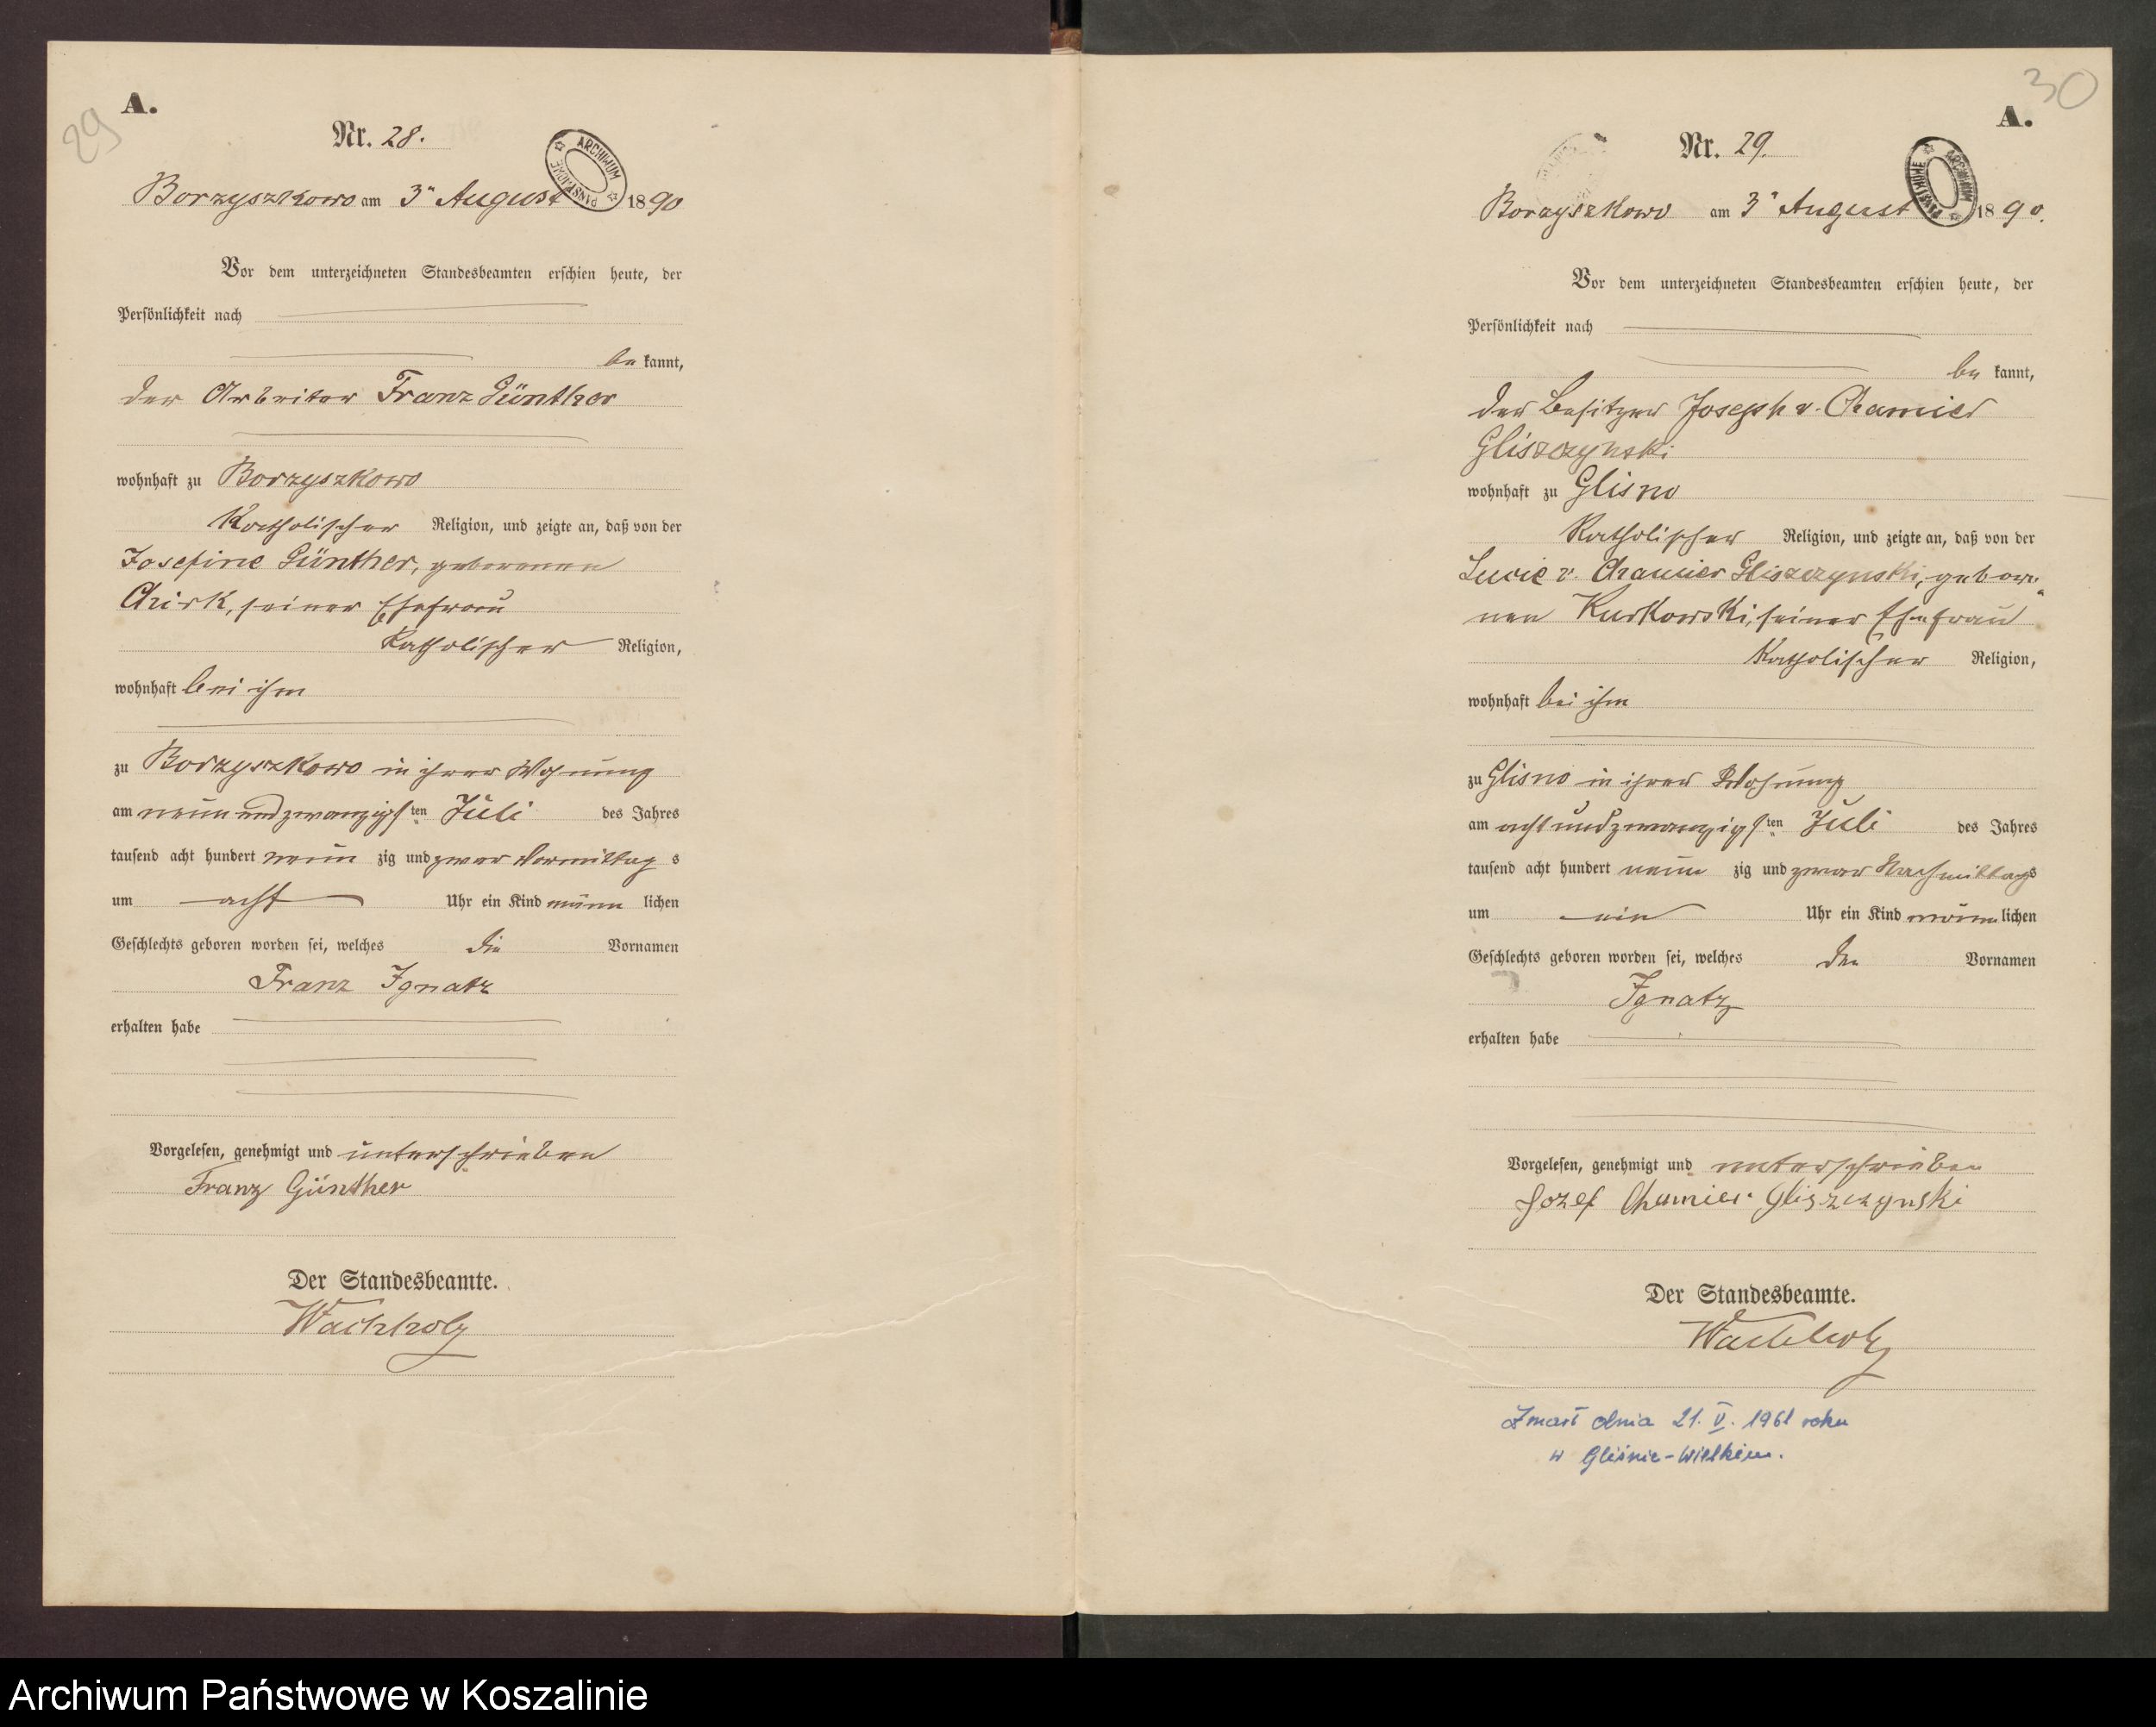 29
A.
Nr. 28.
ARCHIWUM PAŃSTWOWE
Borzyszkowo am 3ⁿ August 1890
Vor dem unterzeichneten Standesbeamten erschien heute, der
Persönlichkeit nach
be kannt,
der Arbeiter Franz Günther
wohnhaft zu Borzyszkowo
Katholischer Religion, und zeigte an, daß von der
Josefine Günther, geborenen
seiner Ehefrau
Katholischer Religion,
wohnhaft bei ihm
zu Borzyszkowo in ihrer Wohnung
am neun und zwanzigsten Juli des Jahres
tausend acht hundert neun zig und zwar Vormittag s
um acht Uhr ein Kind männ lichen
Geschlechts geboren worden sei, welches die Vornamen
Franz Ignatz
erhalten habe
Vorgelesen, genehmigt und unterschrieben
Franz Günther
Der Standesbeamte.
Wachholz
30
A.
Nr. 29.
ARCHIWUM PAŃSTWOWE
Borzyszkowo am 3ⁿ August 1890.
Vor dem unterzeichneten Standesbeamten erschien heute, der
Persönlichkeit nach
be kannt,
der Besitzer Joseph v. Chamier
Gliszczynski
wohnhaft zu Glisno
Katholischer Religion, und zeigte an, daß von der
Lucie v. Chamier Gliszczynski, gebore-
nen Kurkowski, seiner Ehefrau
Katholischer Religion,
wohnhaft bei ihm
zu Glisno in ihrer Wohnung
am acht und zwanzigsten Juli des Jahres
tausend acht hundert neun zig und zwar Nachmittags
um ein Uhr ein Kind männ lichen
Geschlechts geboren worden sei, welches den Vornamen
Ignatz
erhalten habe
Vorgelesen, genehmigt und unterschrieben
Jozef Chamier Gliszczynski
Der Standesbeamte.
Wachholz
Zmarł dnia 21. V. 1961 roku
w Gliśnie-Wielkim.
Archiwum Państwowe w Koszalinie